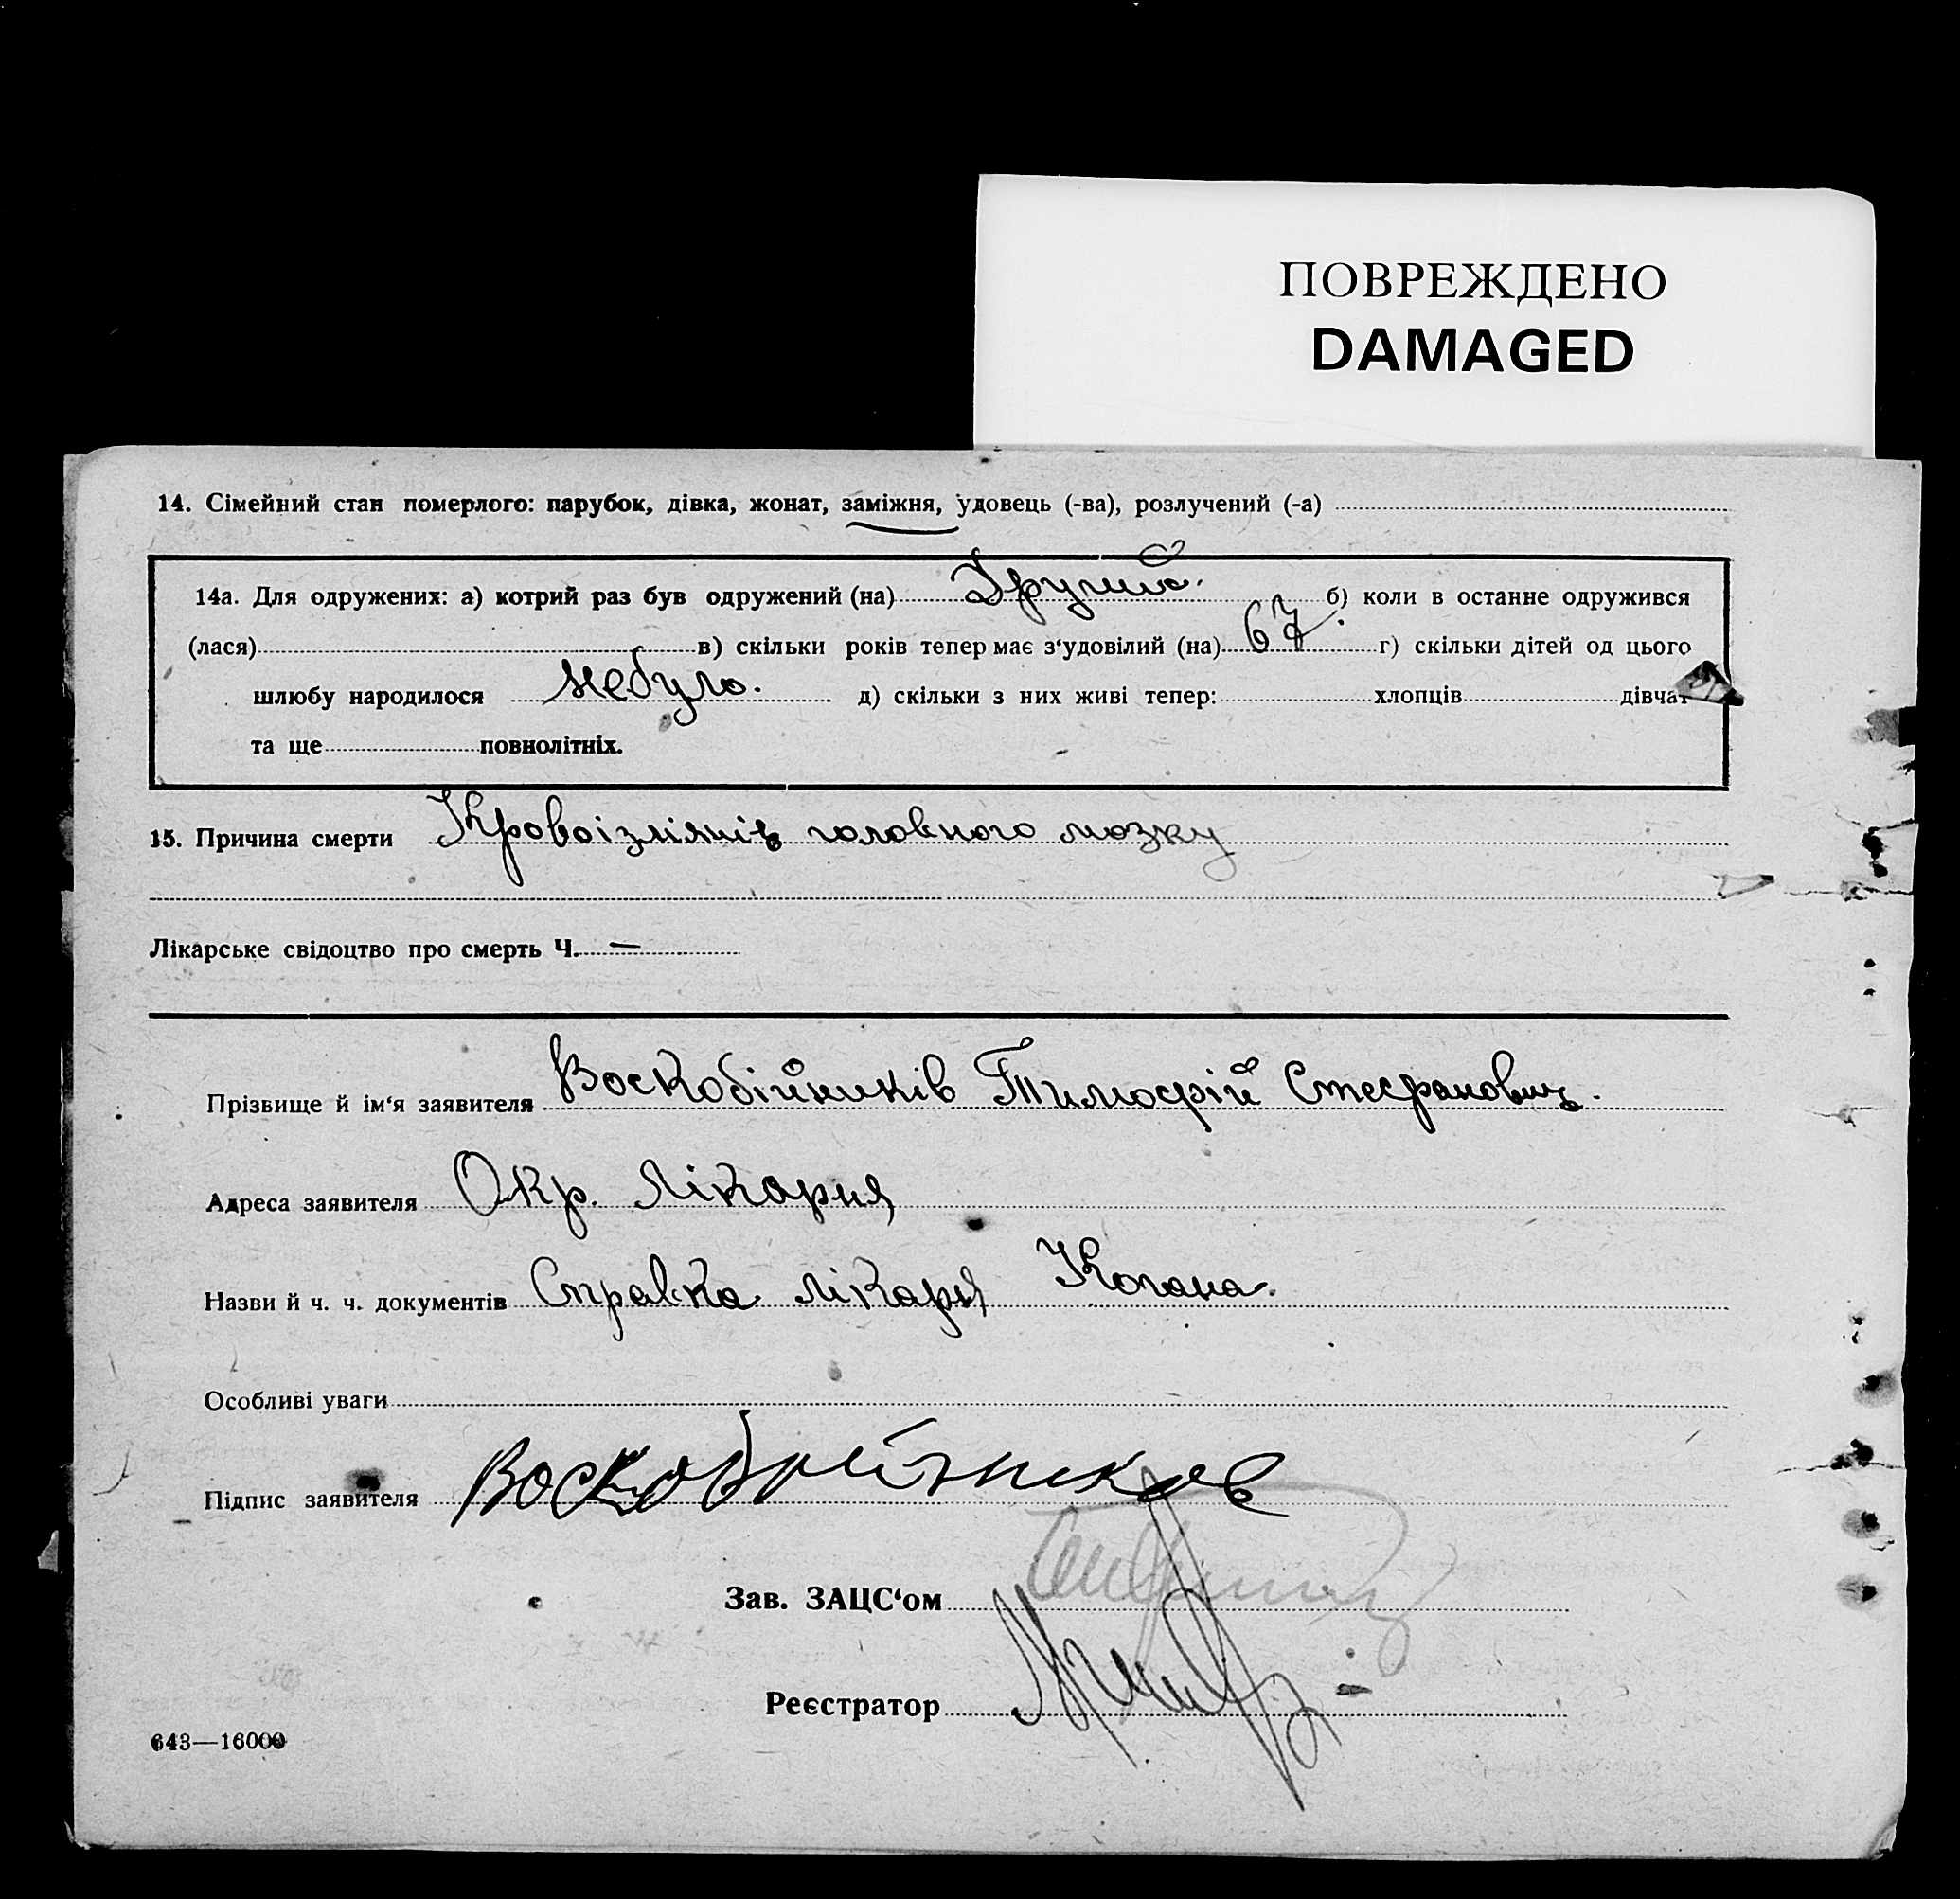 ПОВРЕЖДЕНО
DAMAGED
14. Сімейний стан померлого: парубок, дівка, жонат, заміжня, удовець (-ва), розлучений (-а)
14а. Для одружених: а) котрий раз був одружений (на) Другий. б) коли в останне одружився
(лася) в) скільки років тепер має з‘удовілий (на) 67. г) скільки дітей од цього
шлюбу народилося небуло. д) скільки з них живі тепер: хлопців дівчат
та ще повнолітніх.
15. Причина смерти Кровоізліяніе головного мозку
Лікарське свідоцтво про смерть Ч. —
Прізвище й ім‘я заявителя Воскобійників Тимофій Стефанович.
Адреса заявителя Окр. лікарня
Назви й ч. ч. документів Справка лікаря Когана.
Особливі уваги
Підпис заявителя Воскобойников
Зав. ЗАЦС‘ом
Реєстратор
643—16000